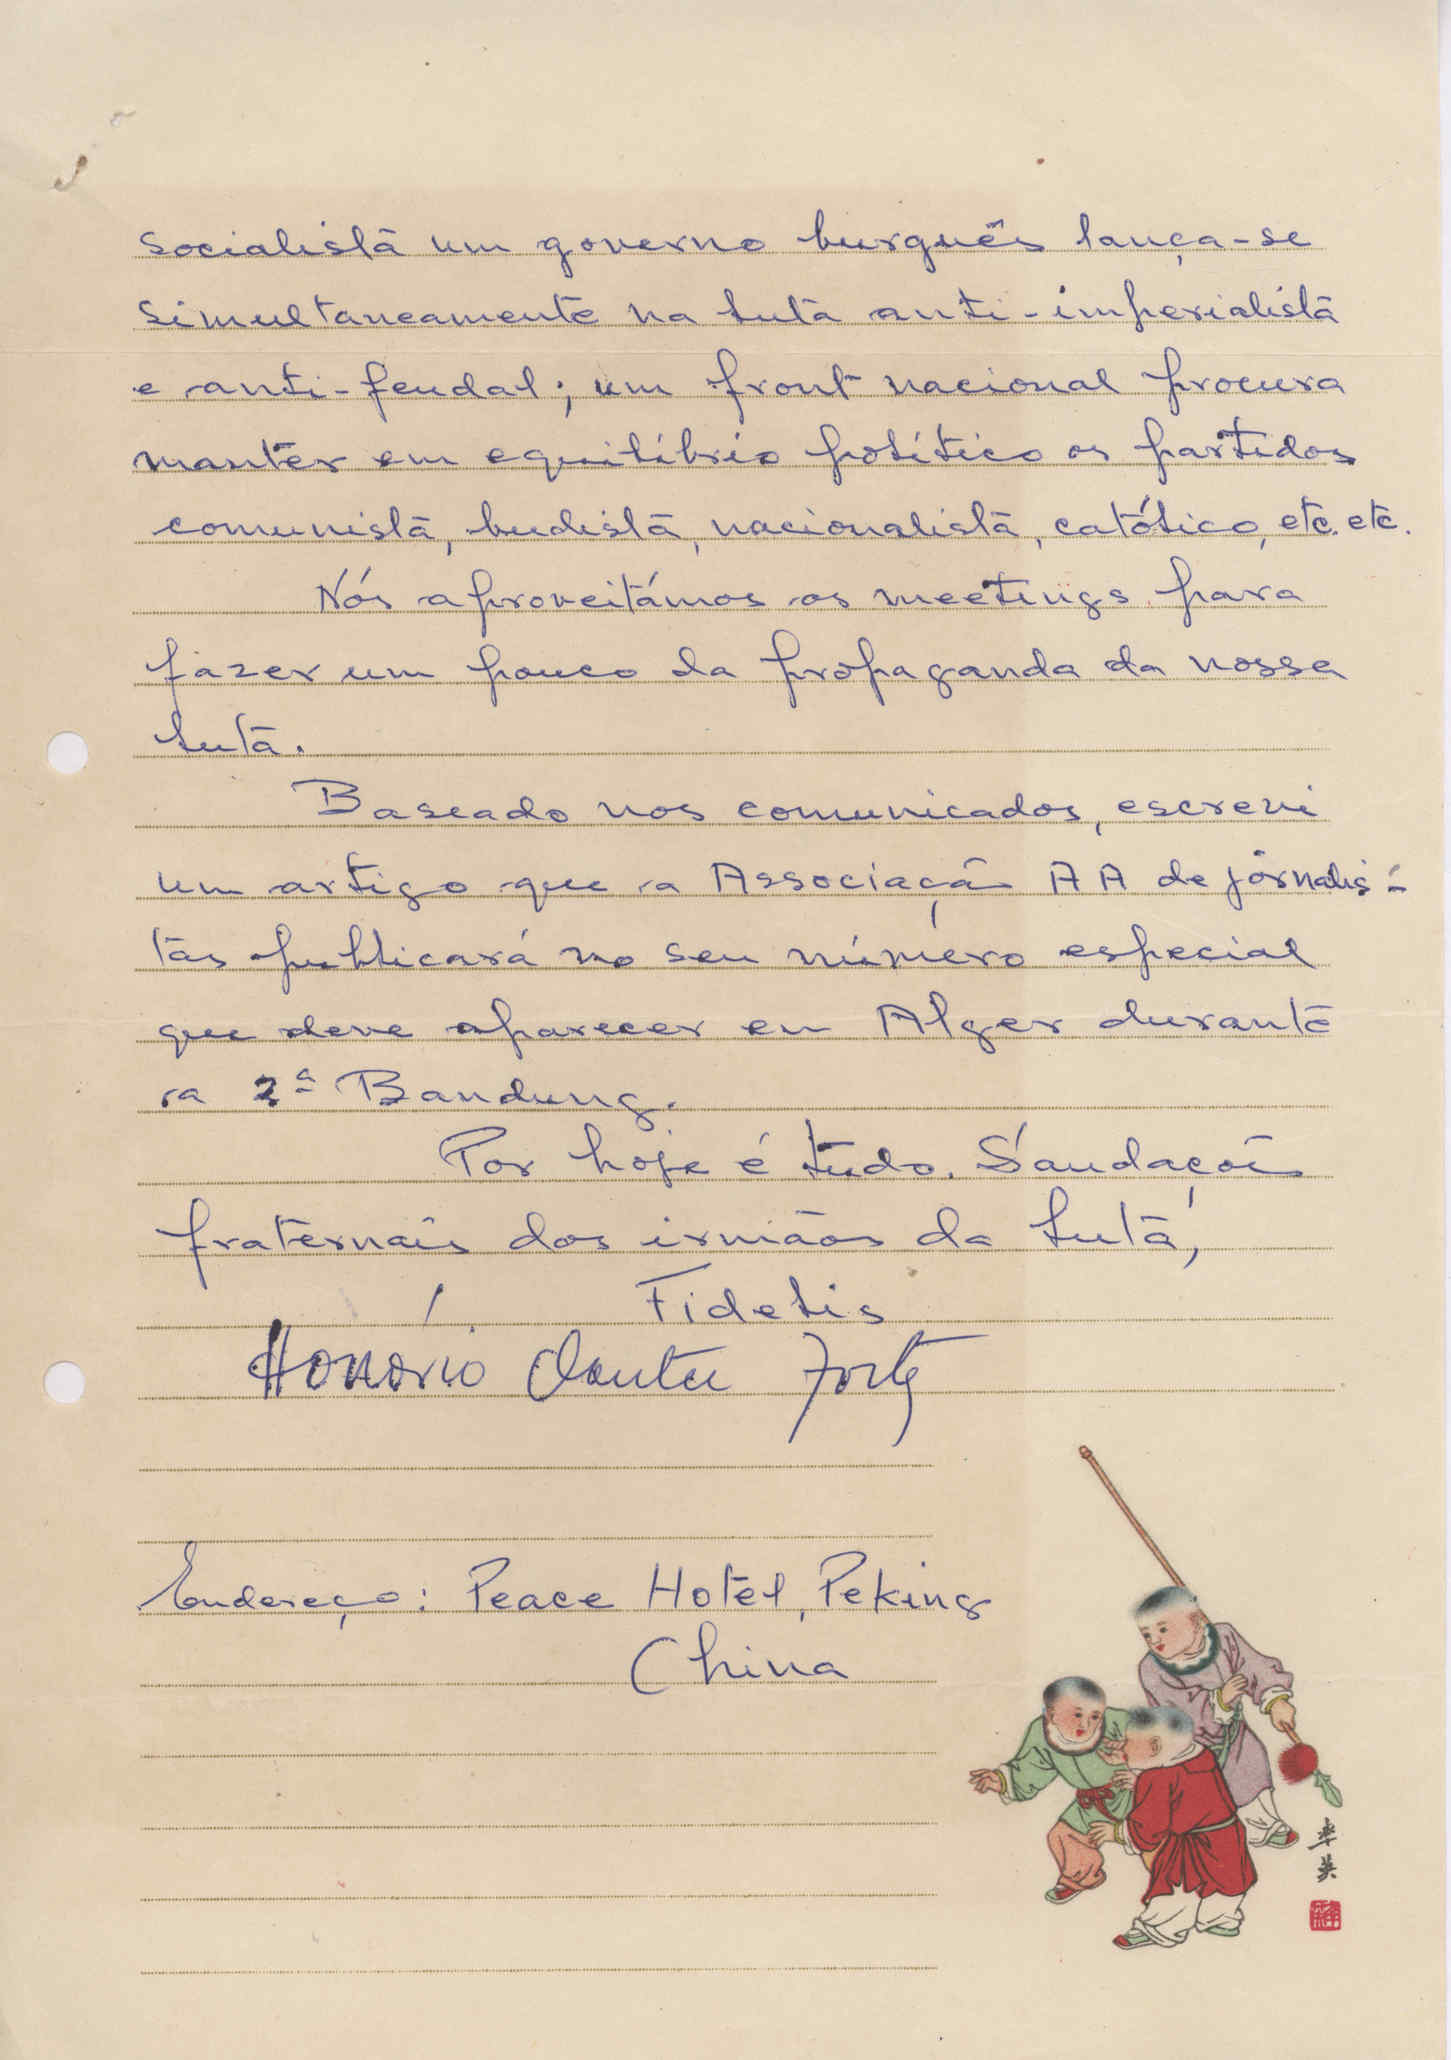 socialista um governo burguês lança-se
simultaneamente na luta anti-imperialista
e anti-feudal; um front nacional procura
manter em equilíbrio político os partidos
comunista, budista, nacionalista, católico, etc. etc.
Nós aproveitámos os meetings para
fazer um pouco da propaganda da nossa
luta.
Baseado nos comunicados, escrevi
um artigo que a Associação AA de jornalis-
tas publicará no seu número especial
que deve aparecer em Alger durante
a 2ª Bandung.
Por hoje é tudo. Saudações
fraternais dos irmãos da luta,
Fidelis
Honório Chantre Fortes
Endereço: Peace Hotel, Peking
China